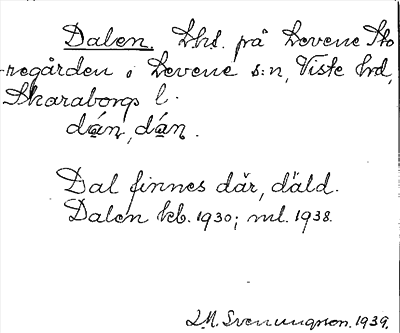 Dalen. Lhs. på Levene Sto
-regården i Levene s:n, Viste hd,
Skaraborgs l.
dán, dán.
Dal finnes där, däld.
Dalen kb. 1930; ml. 1938.
L.M. Svenungsson. 1939.